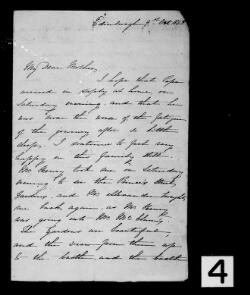 Edinburgh 9th Oct
My Dear Mother,
I hope that Papa
arrived in safety at home, on
Saturday evening, and that he
was over the worst of the fatigues
of the journey after a little
sleep. I continue to feel very
happy in this family still.
Mr Henry took me on Saturday
morning to see the Princes Street
Gardens, and Mr Alexander brought
me back again, as Mr Henry
was going with Mr
The Gardens are beautiful,
and the view from them up
to the castle and the
4